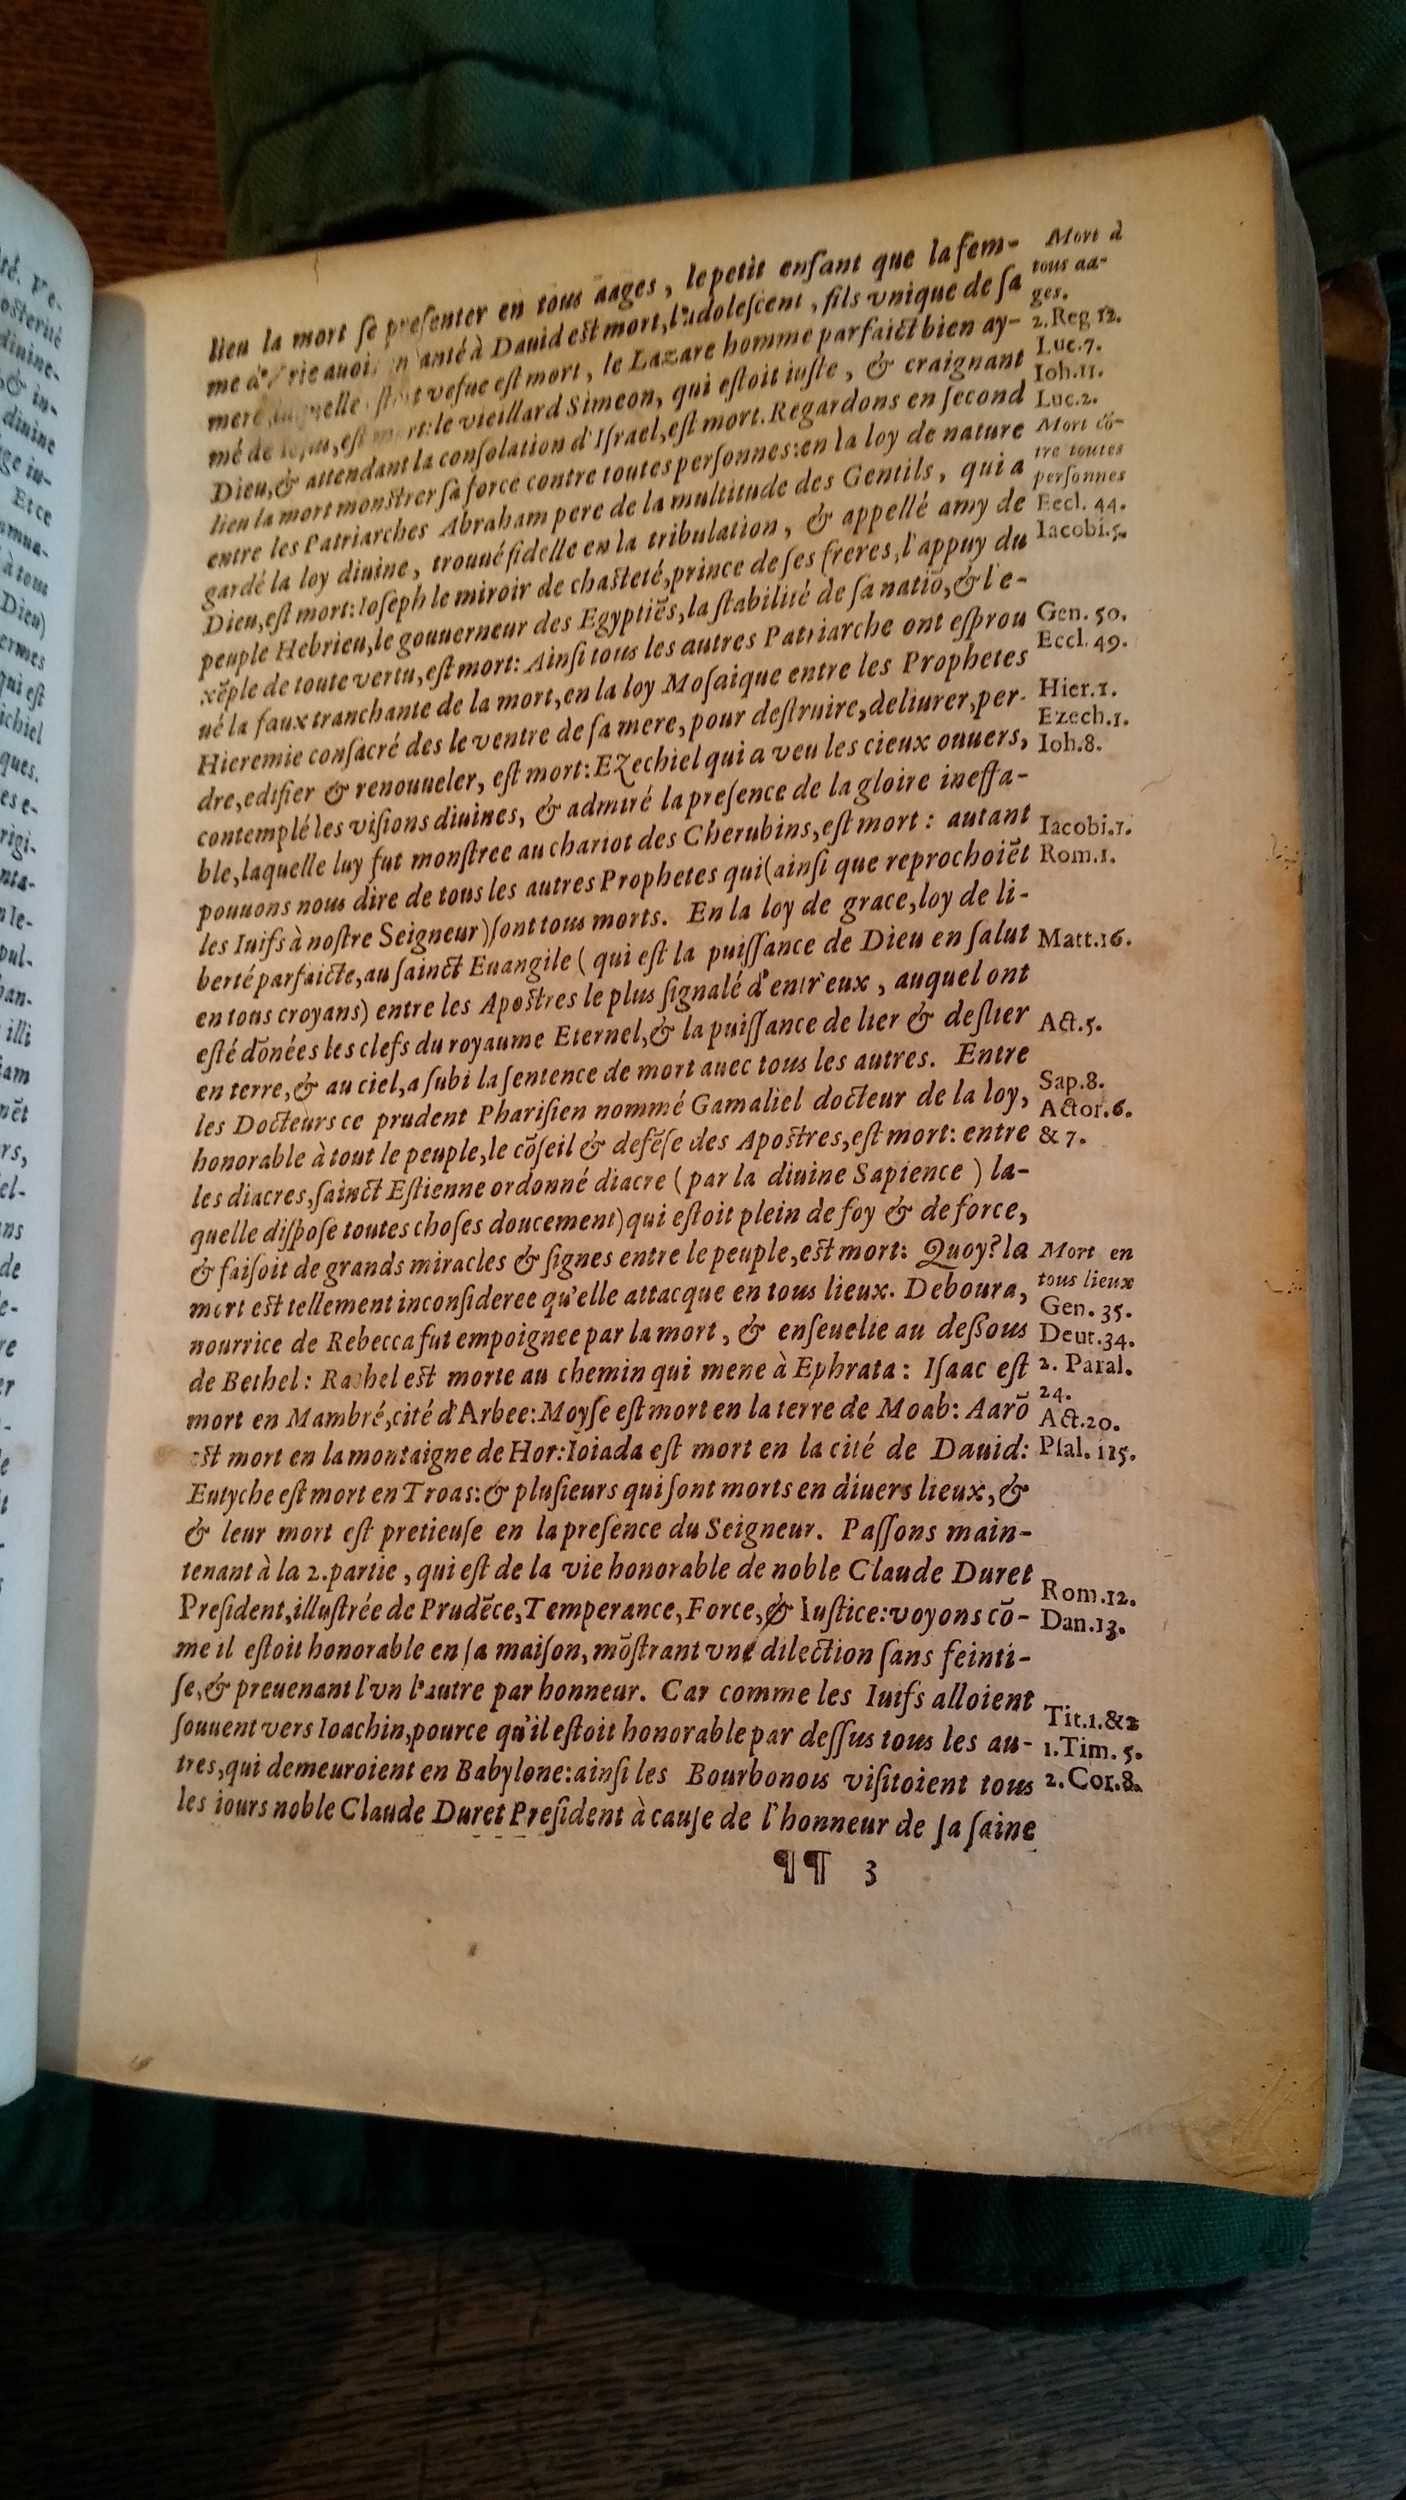 lieu la mort ſe preſenter en tous aages, le petit enfant que la fem-
me d'Vrie auoit enfanté à Dauid eſt mort, l'adoleſcent, fils vnique de ſa
mere, laquelle eſtoit vefue eſt mort, le Lazare homme parfaict bien ay-
mé de Ieſus, eſt mort: le vieillard Simeon, qui eſtoit iuſte, & craignant
Dieu, & attendant la conſolation d'Iſrael, eſt mort. Regardons en ſecond
lieu la mort monſtrer ſa force contre toutes perſonnes: en la loy de nature
entre les Patriarches Abraham pere de la multitude des Gentils, qui a
gardé la loy diuine, trouué fidelle en la tribulation, & appellé amy de
Dieu, eſt mort: Ioſeph le miroir de chaſteté, prince de ſes freres, l'appuy du
peuple Hebrieu, le gouuerneur des Egyptiēs, la ſtabilité de ſa natiō, & l'e-
xēple de toute vertu, eſt mort: Ainſi tous les autres Patriarche ont eſprou
ué la faux tranchante de la mort, en la loy Moſaique entre les Prophetes
Hieremie conſacré des le ventre de ſa mere, pour deſtruire, deliurer, per-
dre, edifier & renouueler, eſt mort: Ezechiel qui a veu les cieux ouuers,
contemplé les viſions diuines, & admiré la preſence de la gloire ineffa-
ble, laquelle luy fut monſtree au chariot des Cherubins, eſt mort: autant
pouuons nous dire de tous les autres Prophetes qui (ainſi que reprochoiēt
les Iuifs à noſtre Seigneur) ſont tous morts. En la loy de grace, loy de li-
berté parfaicte, au ſainct Euangile (qui eſt la puiſſance de Dieu en ſalut
en tous croyans) entre les Apoſtres le plus ſignalé d'entr'eux, auquel ont
eſté dōnées les clefs du royaume Eternel, & la puiſſance de lier & deſlier
en terre, & au ciel, a ſubi la ſentence de mort auec tous les autres. Entre
les Docteurs ce prudent Phariſien nommé Gamaliel docteur de la loy,
honorable à tout le peuple, le cōſeil & defēſe des Apoſtres, eſt mort: entre
les diacres, ſainct Eſtienne ordonné diacre (par la diuine Sapience) la-
quelle diſpoſe toutes choſes doucement) qui eſtoit plein de foy & de force,
& faiſoit de grands miracles & ſignes entre le peuple, eſt mort: Quoy? la
mort eſt tellement inconſideree qu'elle attacque en tous lieux. Deboura,
nourrice de Rebecca fut empoignee par la mort, & enſeuelie au deſſous
de Bethel: Rachel eſt morte au chemin qui mene à Ephrata: Iſaac eſt
mort en Mambré, cité d'Arbee: Moyſe eſt mort en la terre de Moab: Aarō
eſt mort en la montaigne de Hor: Ioiada eſt mort en la cité de Dauid:
Eutyche eſt mort en Troas: & pluſieurs qui ſont morts en diuers lieux, &
& leur mort eſt pretieuſe en la preſence du Seigneur. Paſſons main-
tenant à la 2. partie, qui eſt de la vie honorable de noble Claude Duret
Preſident, illuſtrée de Prudēce, Temperance, Force, & Iuſtice: voyons cō-
me il eſtoit honorable en ſa maiſon, mōſtrant vne dilection ſans feinti-
ſe, & preuenant l'vn l'autre par honneur. Car comme les Iuifs alloient
ſouuent vers Ioachin, pource qu'il eſtoit honorable par deſſus tous les au-
tres, qui demeuroient en Babylone: ainſi les Bourbonois viſitoient tous
les iours noble Claude Duret Preſident à cauſe de l'honneur de ſa ſaine
¶¶ 3
Mort à
tous aa-
ges.
2. Reg 12.
Luc.7.
Ioh.11.
Luc.2.
Mort cō-
tre toutes
perſonnes
Eccl. 44.
Iacobi.5.
Gen. 50.
Eccl. 49.
Hier.1.
Ezech.1.
Ioh.8.
Iacobi.1.
Rom.1.
Matt.16.
Act.5.
Sap.8.
Actor.6.
& 7.
Mort en
tous lieux
Gen. 35.
Deut.34.
2. Paral.
24.
Act.20.
Pſal. 115.
Rom.12.
Dan.13.
Tit.1.&2
1.Tim. 5.
2. Cor.8.